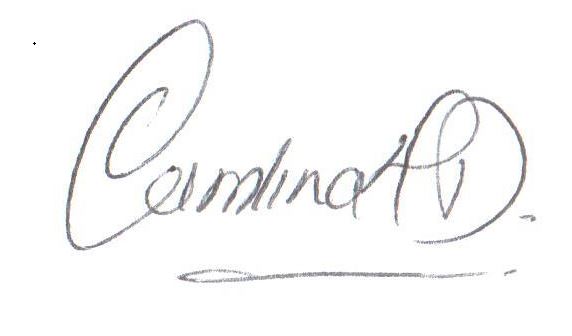 Carolina HD.